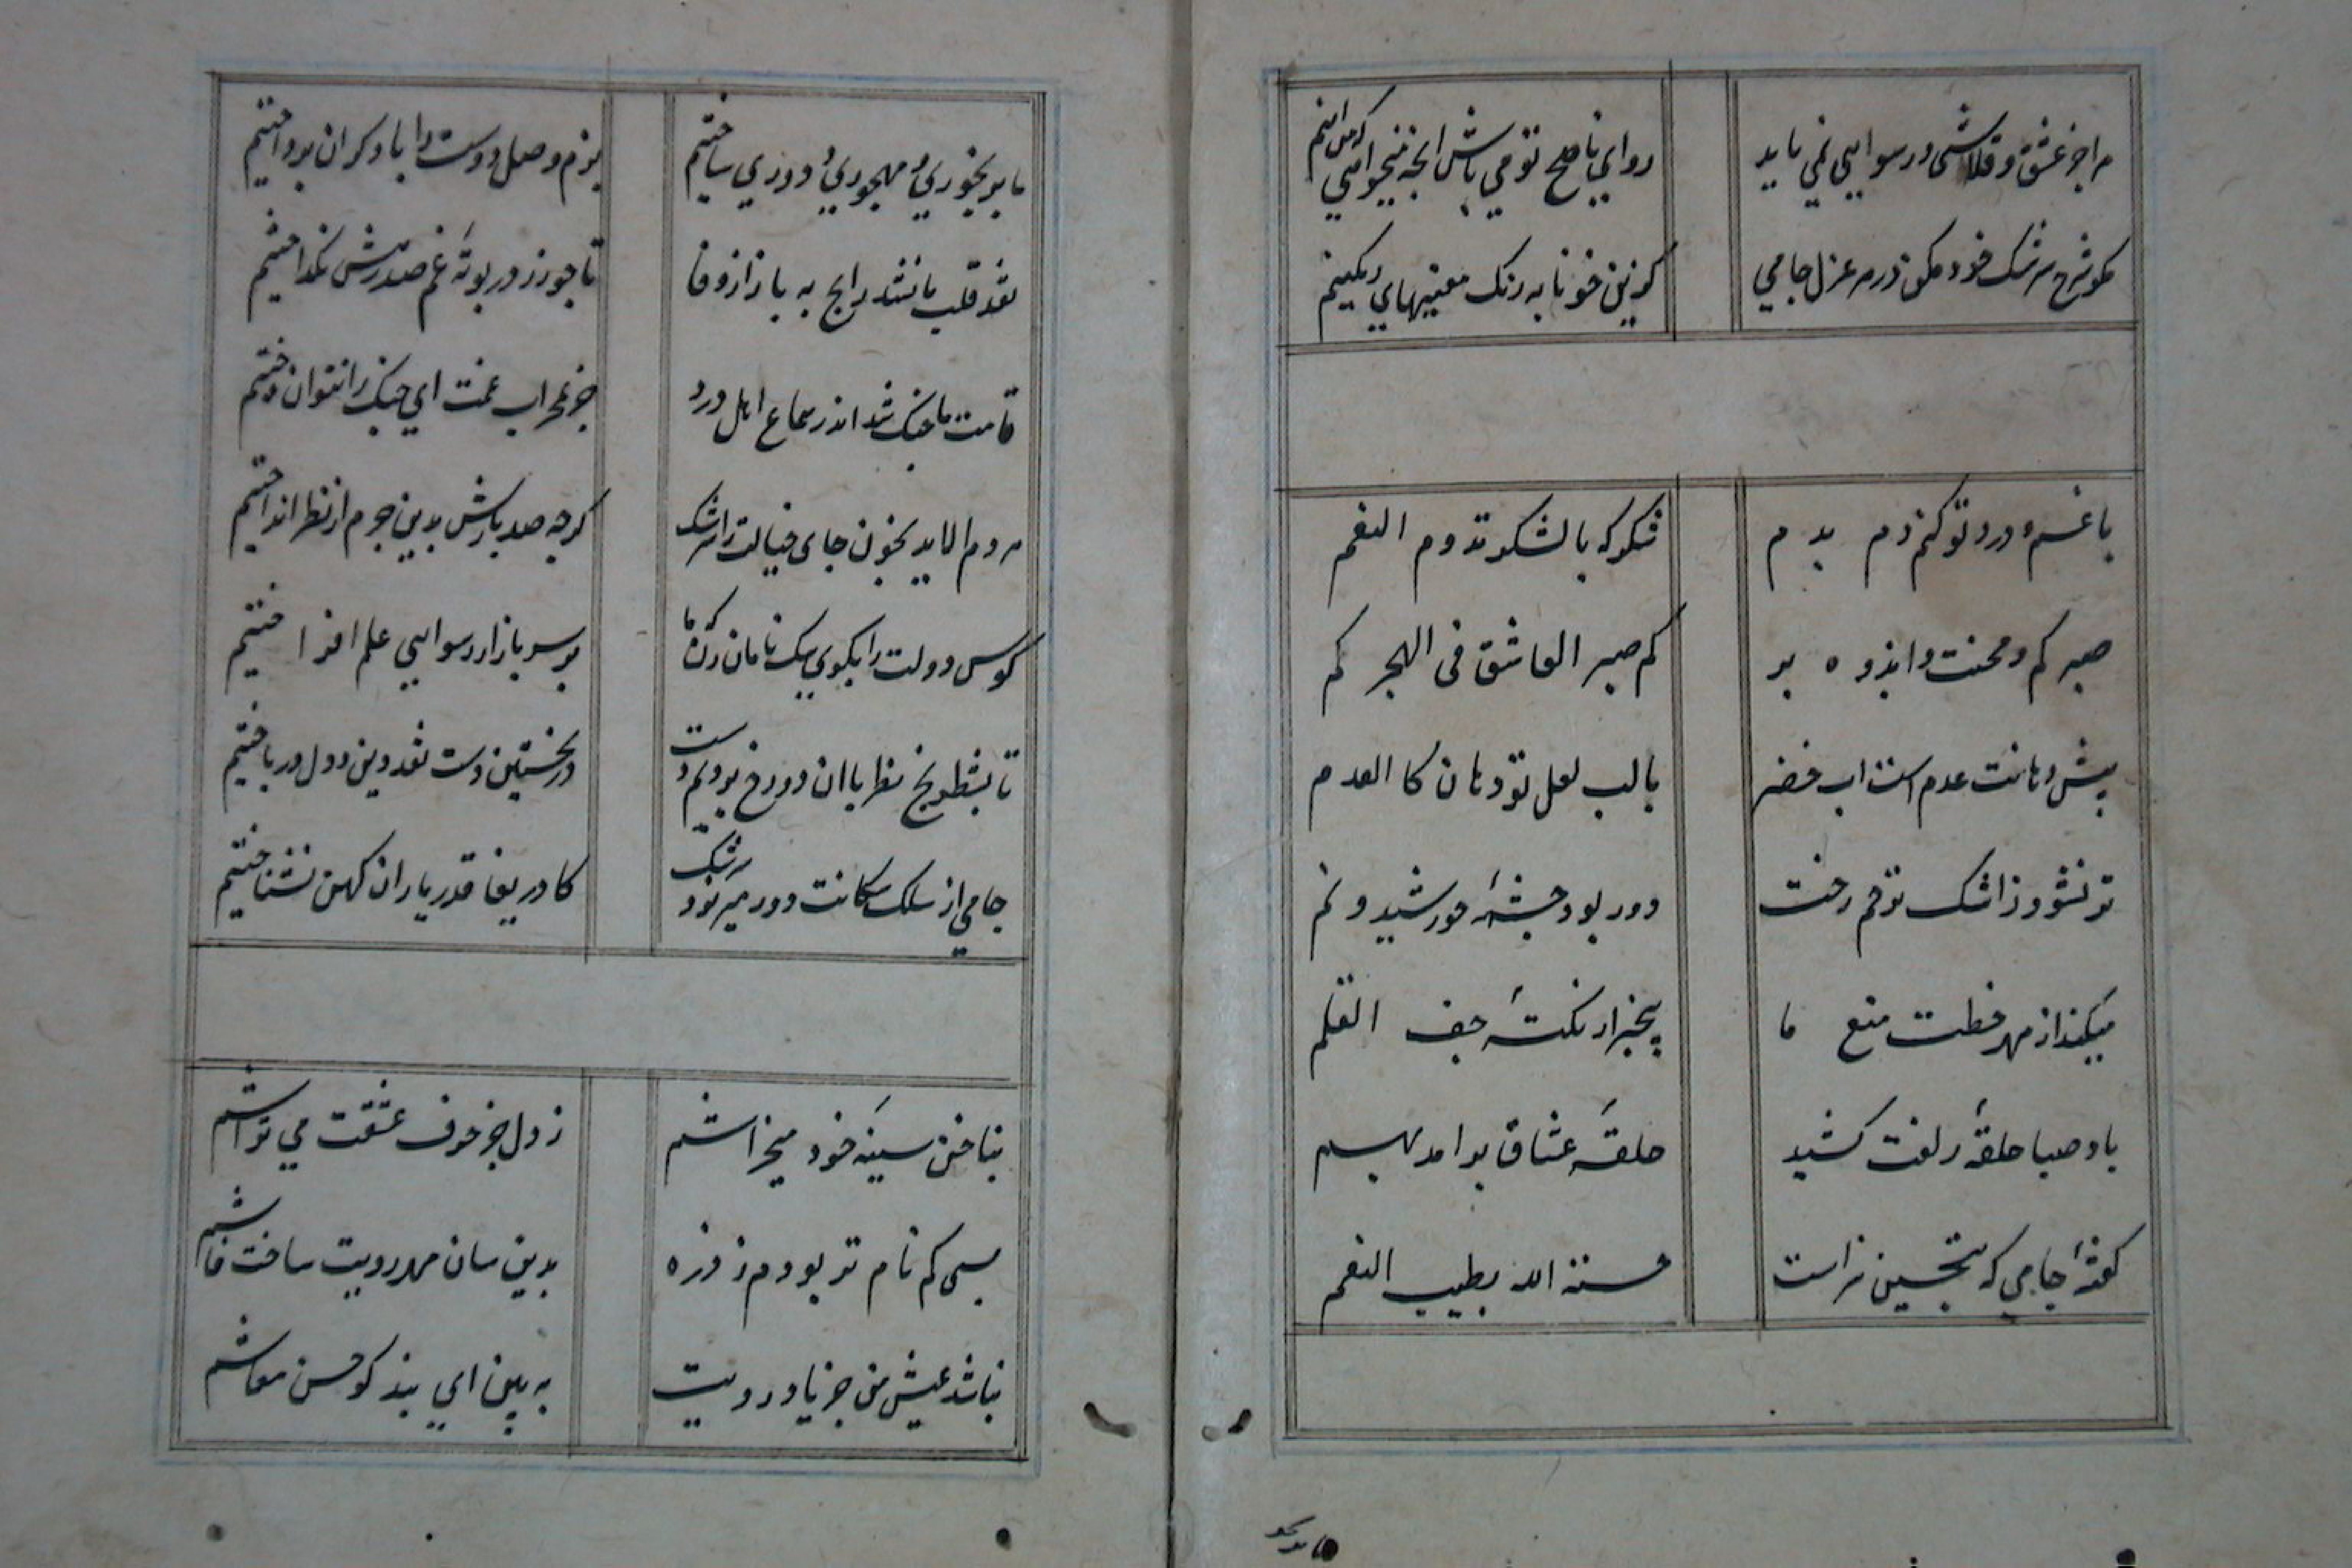 مرا جز عشق و قلاشی و رسوایی نمی باید
رو ای ناصح تو می باش انچه میخواهی که من اینم
مکو شرح سرشک خود مکن در هر غزل جامی
کزین خونابه رنک معنیهای رنکینم
با غم و درد تو کنم دم بدم
شکر که بالشکر تدوم النعم
صبر کم و محنت و اندوه بر
کم صبر العاشق فی الهجر کم
پیش دهانت عدم است اب خضر
با لب لعل تو دهان کالعدم
تر نشود ز اشک تو هم رخت
دور بود چشمه خورشید و نم
میکند از مهر خطت منع ما
بیخبر از نکته جف القلم
باد صبا حلقه زلفت کشید
حلقه عشاق برامد بهم
کفته جامی که بتحسین سزاست
حسنه الله بطیب النغم
ما بر
ما بر بیخوری و مهجوری و دوری ساختیم
بزم وصل دوست را با دکران پرداختیم
نقد قلب ما نشد رایج به بازار وفا
تا چو زر در بوته غم صد رهش نکداختیم
قامت ما چنک شد اندر سماع اهل درد
جز بمحراب غمت ای چنک را ننواختیم
مردم الاید بخون جای خیالت را سرشک
کرچه صد بارش بدین جرم از نظر انداختیم
کوس دولت را بکوی نیک نامان زن که ما
بر سر بازار رسوایی علم افراختیم
تا بشطرنج نظر با ان دو رخ بردیم دست
در نخستین دست نقد دین و دل در باختیم
جامی از سلک سکانت دور میزد سرشک
کا دریغا قدر یاران کهن نشناختیم
بناخن سینه خود میخراشم
ز دل جز حرف عشقت می تراشم
بسی کم نام تر بودم ز ذره
بدین سان مهر رویت ساخت فاشم
نباشد عیش من جز یاد رویت
به بین ای پند کو حسن معاشم